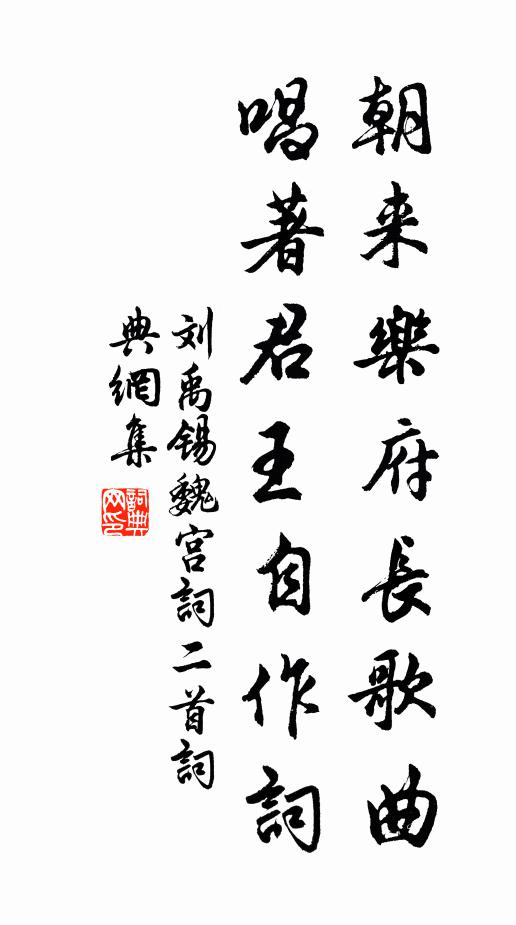 朝来樂府長歌曲
唱著君王自作詞
刘禹锡魏宫詞二首詞
典網集
詞典网印